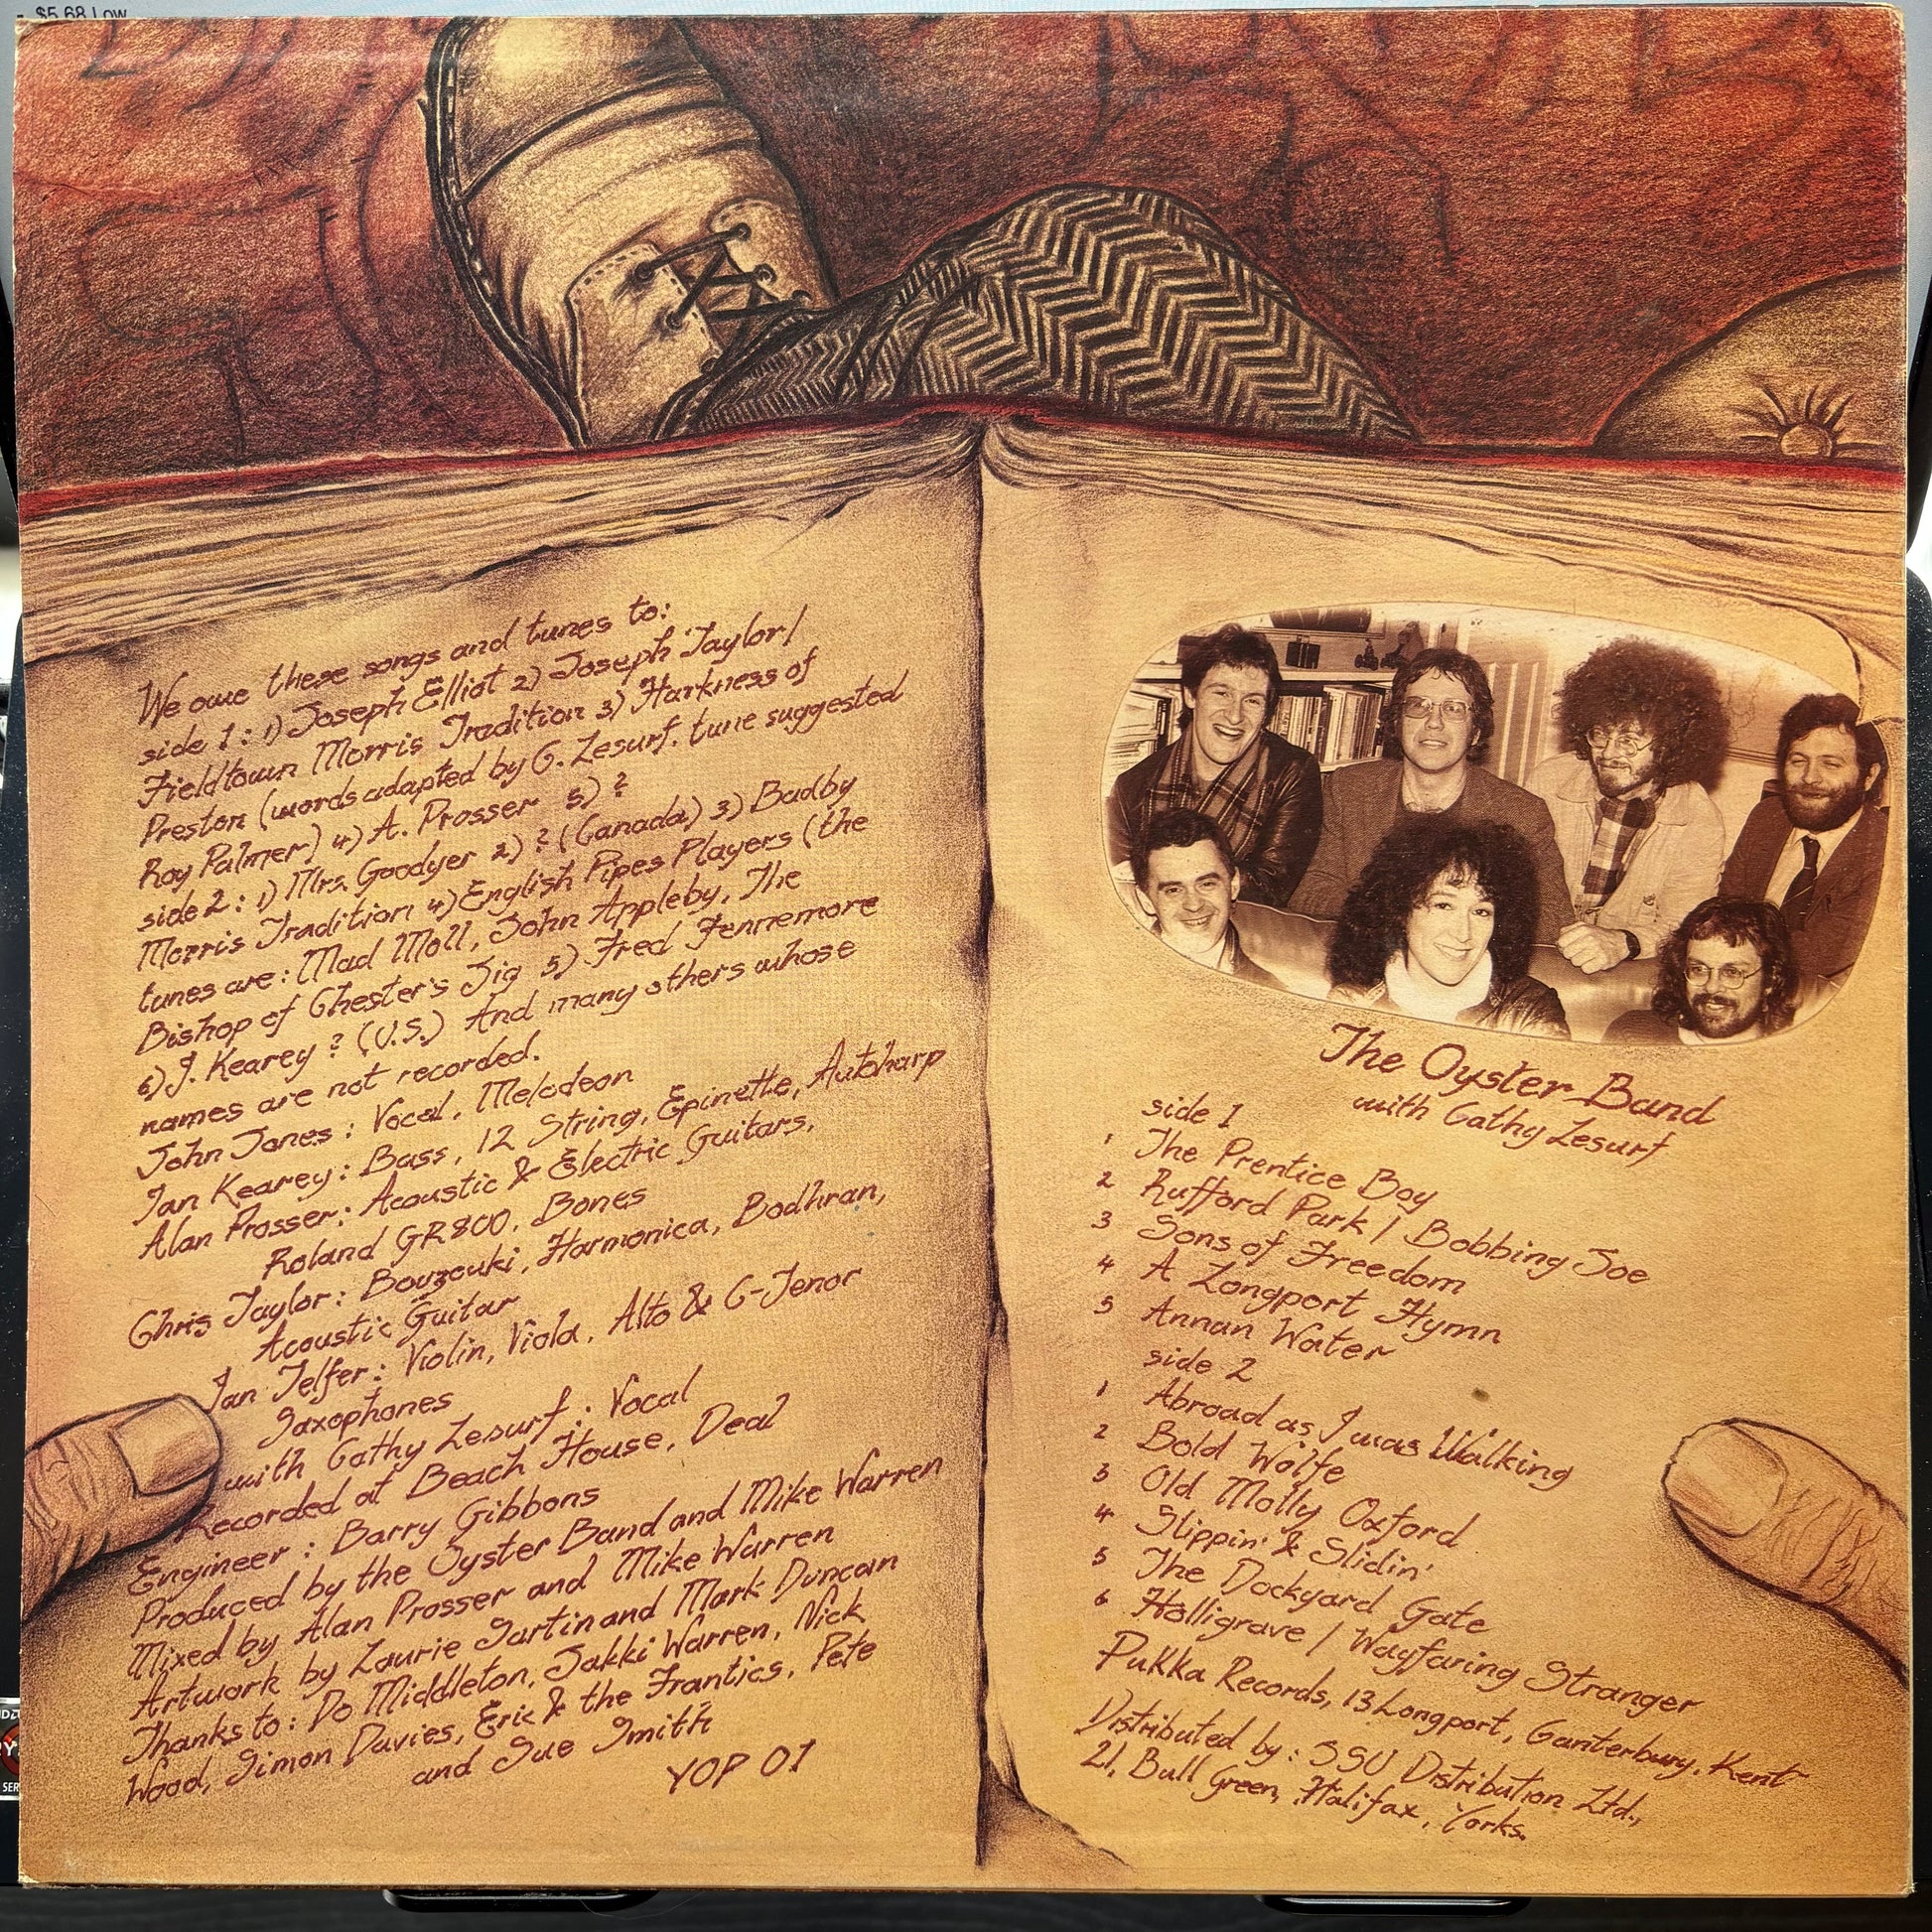 $5.68 Low
We owe these songs and tunes to:
side 1: 1) Joseph Elliot 2) Joseph Taylor/
Fieldtown Morris Tradition 3) Harkness of
Preston (words adapted by C. Lesurf, tune suggested
Roy Palmer) 4) A. Prosser 5) ?
side 2: 1) Mrs. Goodyer 2) ? (Canada) 3) Badby
Morris Tradition 4) English Pipes Players (the
tunes are: Mad Moll, John Appleby, The
Bishop of Chester's Jig 5) Fred Fennemore
6) J. Kearey ? (U.S.) And many others whose
names are not recorded.
John Jones: Vocal, Melodeon
Ian Kearey: Bass, 12 String, Epinette, Autoharp
Alan Prosser: Acoustic & Electric Guitars,
Roland GR800, Bones
Chris Taylor: Bouzouki, Harmonica, Bodhran,
Acoustic Guitar
Ian Telfer: Violin, Viola, Alto & C-Tenor
Saxophones
with Cathy Lesurf: Vocal
Recorded at Beach House, Deal
Engineer: Barry Gibbons
Produced by the Oyster Band and Mike Warren
Mixed by Alan Prosser and Mike Warren
Artwork by Laurie Sartin and Mark Duncan
Thanks to: Do Middleton, Jakki Warren, Nick
Wood, Simon Davies, Eric & the Frantics, Pete
and Sue Smith
YOP 01
The Oyster Band
with Cathy Lesurf
side 1
1 The Prentice Boy
2 Rufford Park / Bobbing Joe
3 Sons of Freedom
4 A Longport Hymn
5 Annan Water
side 2
1 Abroad as I was Walking
2 Bold Wolfe
3 Old Molly Oxford
4 Slippin' & Slidin'
5 The Dockyard Gate
6 Holligrave / Wayfaring Stranger
Pukka Records, 13 Longport, Canterbury, Kent
Distributed by: SSU Distribution Ltd.,
21, Bull Green, Halifax, Yorks.